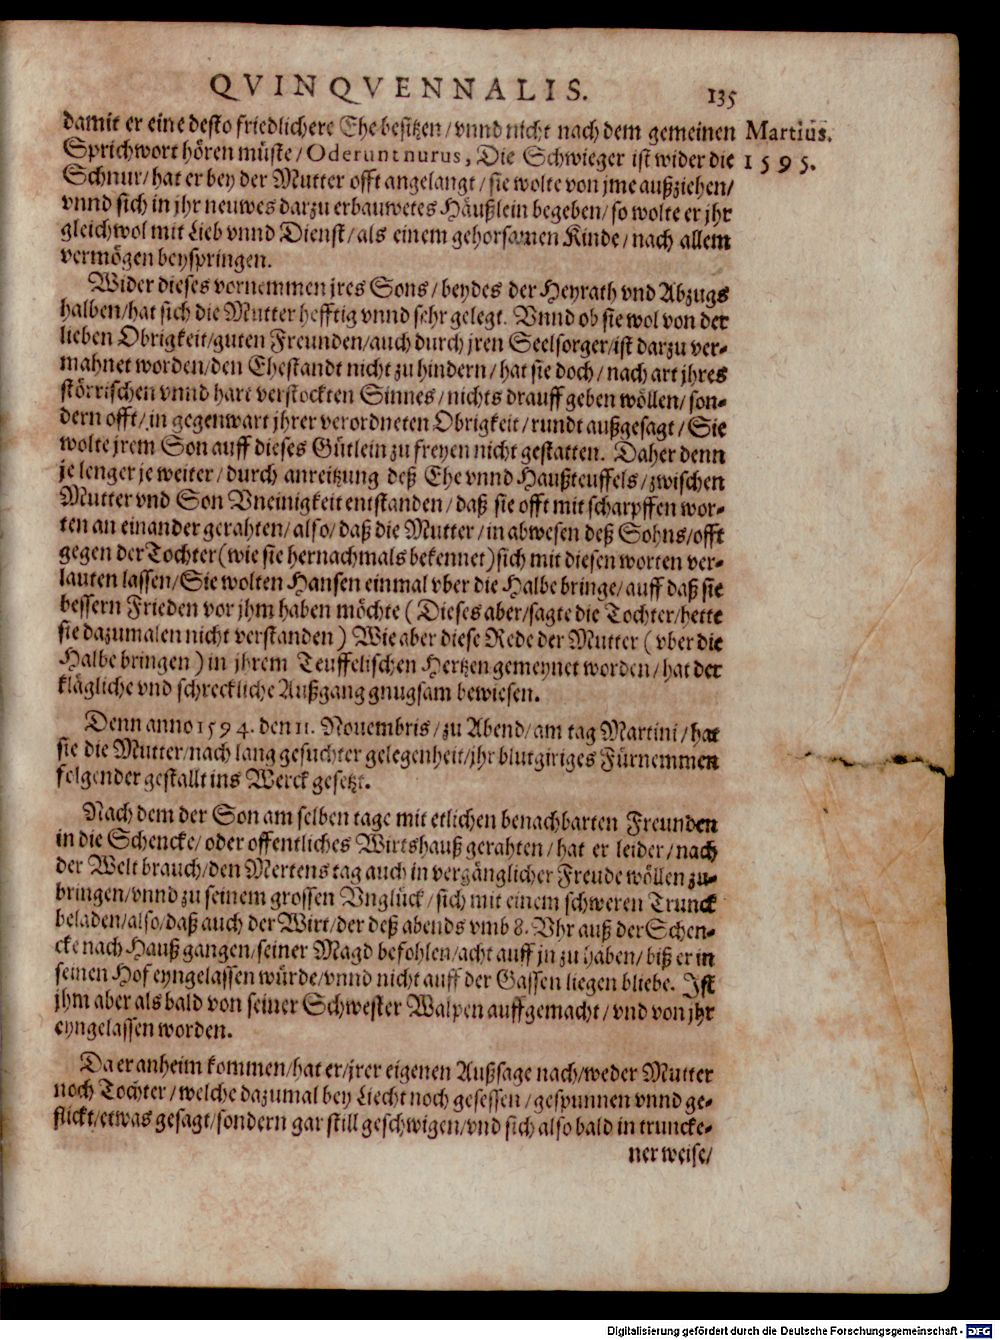 QVINQVENNALIS. 135
damit er eine desto friedlichere Ehe besitzen/ vnnd nicht nach dem gemeinen Martius.
Sprichwort hören müste/ Oderunt nurus, Die Schwieger ist wider die 1595.
Schnur/ hat er bey der Mutter offt angelangt/ sie wolte von jme außziehen/
vnnd sich in jhr neuwes darzu erbauwetes Häußlein begeben/ so wolte er jhr
gleichwol mit Lieb vnnd Dienst/ als einem gehorsamen Kinde/ nach allem
vermögen beyspringen.
Wider dieses vornemmen jres Sons/ beydes der Heyrath vnd Abzugs
halben/ hat sich die Mutter hefftig vnnd sehr gelegt. Vnnd ob sie wol von der
lieben Obrigkeit/ guten Freunden/ auch durch jren Seelsorger/ ist darzu ver-
mahnet worden/ den Ehestandt nicht zu hindern/ hat sie doch/ nach art jhres
störrischen vnnd hart verstockten Sinnes/ nichts drauff geben wöllen/ son-
dern offt/ in gegenwart jhrer verordneten Obrigkeit/ rundt außgesagt/ Sie
wolte jrem Son auff dieses Gütlein zu freyen nicht gestatten. Daher denn
je lenger je weiter/ durch anreitzung deß Ehe vnnd Haußteuffels/ zwischen
Mutter vnd Son Vneinigkeit entstanden/ daß sie offt mit scharpffen wor-
ten an einander gerahten/ also/ daß die Mutter/ in abwesen deß Sohns/ offt
gegen der Tochter (wie sie hernachmals bekennet) sich mit diesen worten ver-
lauten lassen/ Sie wolten Hansen einmal vber die Halbe bringe/ auff daß sie
bessern Frieden vor jhm haben möchte (Dieses aber/ sagte die Tochter/ hette
sie dazumalen nicht verstanden) Wie aber diese Rede der Mutter (vber die
Halbe bringen) in jhrem Teuffelischen Hertzen gemeynet worden/ hat der
klägliche vnd schreckliche Außgang gnugsam bewiesen.
Denn anno 1594. den 11. Nouembris/ zu Abend/ am tag Martini/ hat
sie die Mutter/ nach lang gesuchter gelegenheit/ jhr blutgiriges Fürnemmen
folgender gestallt ins Werck gesetzt.
Nach dem der Son am selben tage mit etlichen benachbarten Freunden
in die Schencke/ oder offentliches Wirtshauß gerahten/ hat er leider/ nach
der Welt brauch/ den Mertens tag auch in vergänglicher Freude wöllen zu-
bringen/ vnnd zu seinem grossen Vnglück/ sich mit einem schweren Trunck
beladen/ also/ daß auch der Wirt/ der deß abends vmb 8. Vhr auß der Schen-
cke nach Hauß gangen/ seiner Magd befohlen/ acht auff jn zu haben/ biß er in
seinen Hof eyngelassen würde/ vnnd nicht auff der Gassen liegen bliebe. Ist
jhm aber als bald von seiner Schwester Walpen auffgemacht/ vnd von jhr
eyngelassen worden.
Da er anheim kommen/ hat er/ jrer eigenen Außsage nach/ weder Mutter
noch Tochter/ welche dazumal bey Liecht noch gesessen/ gespunnen vnnd ge-
flickt/ etwas gesagt/ sondern gar still geschwigen/ vnd sich also bald in truncke-
ner weise/
Digitalisierung gefördert durch die Deutsche Forschungsgemeinschaft - DFG